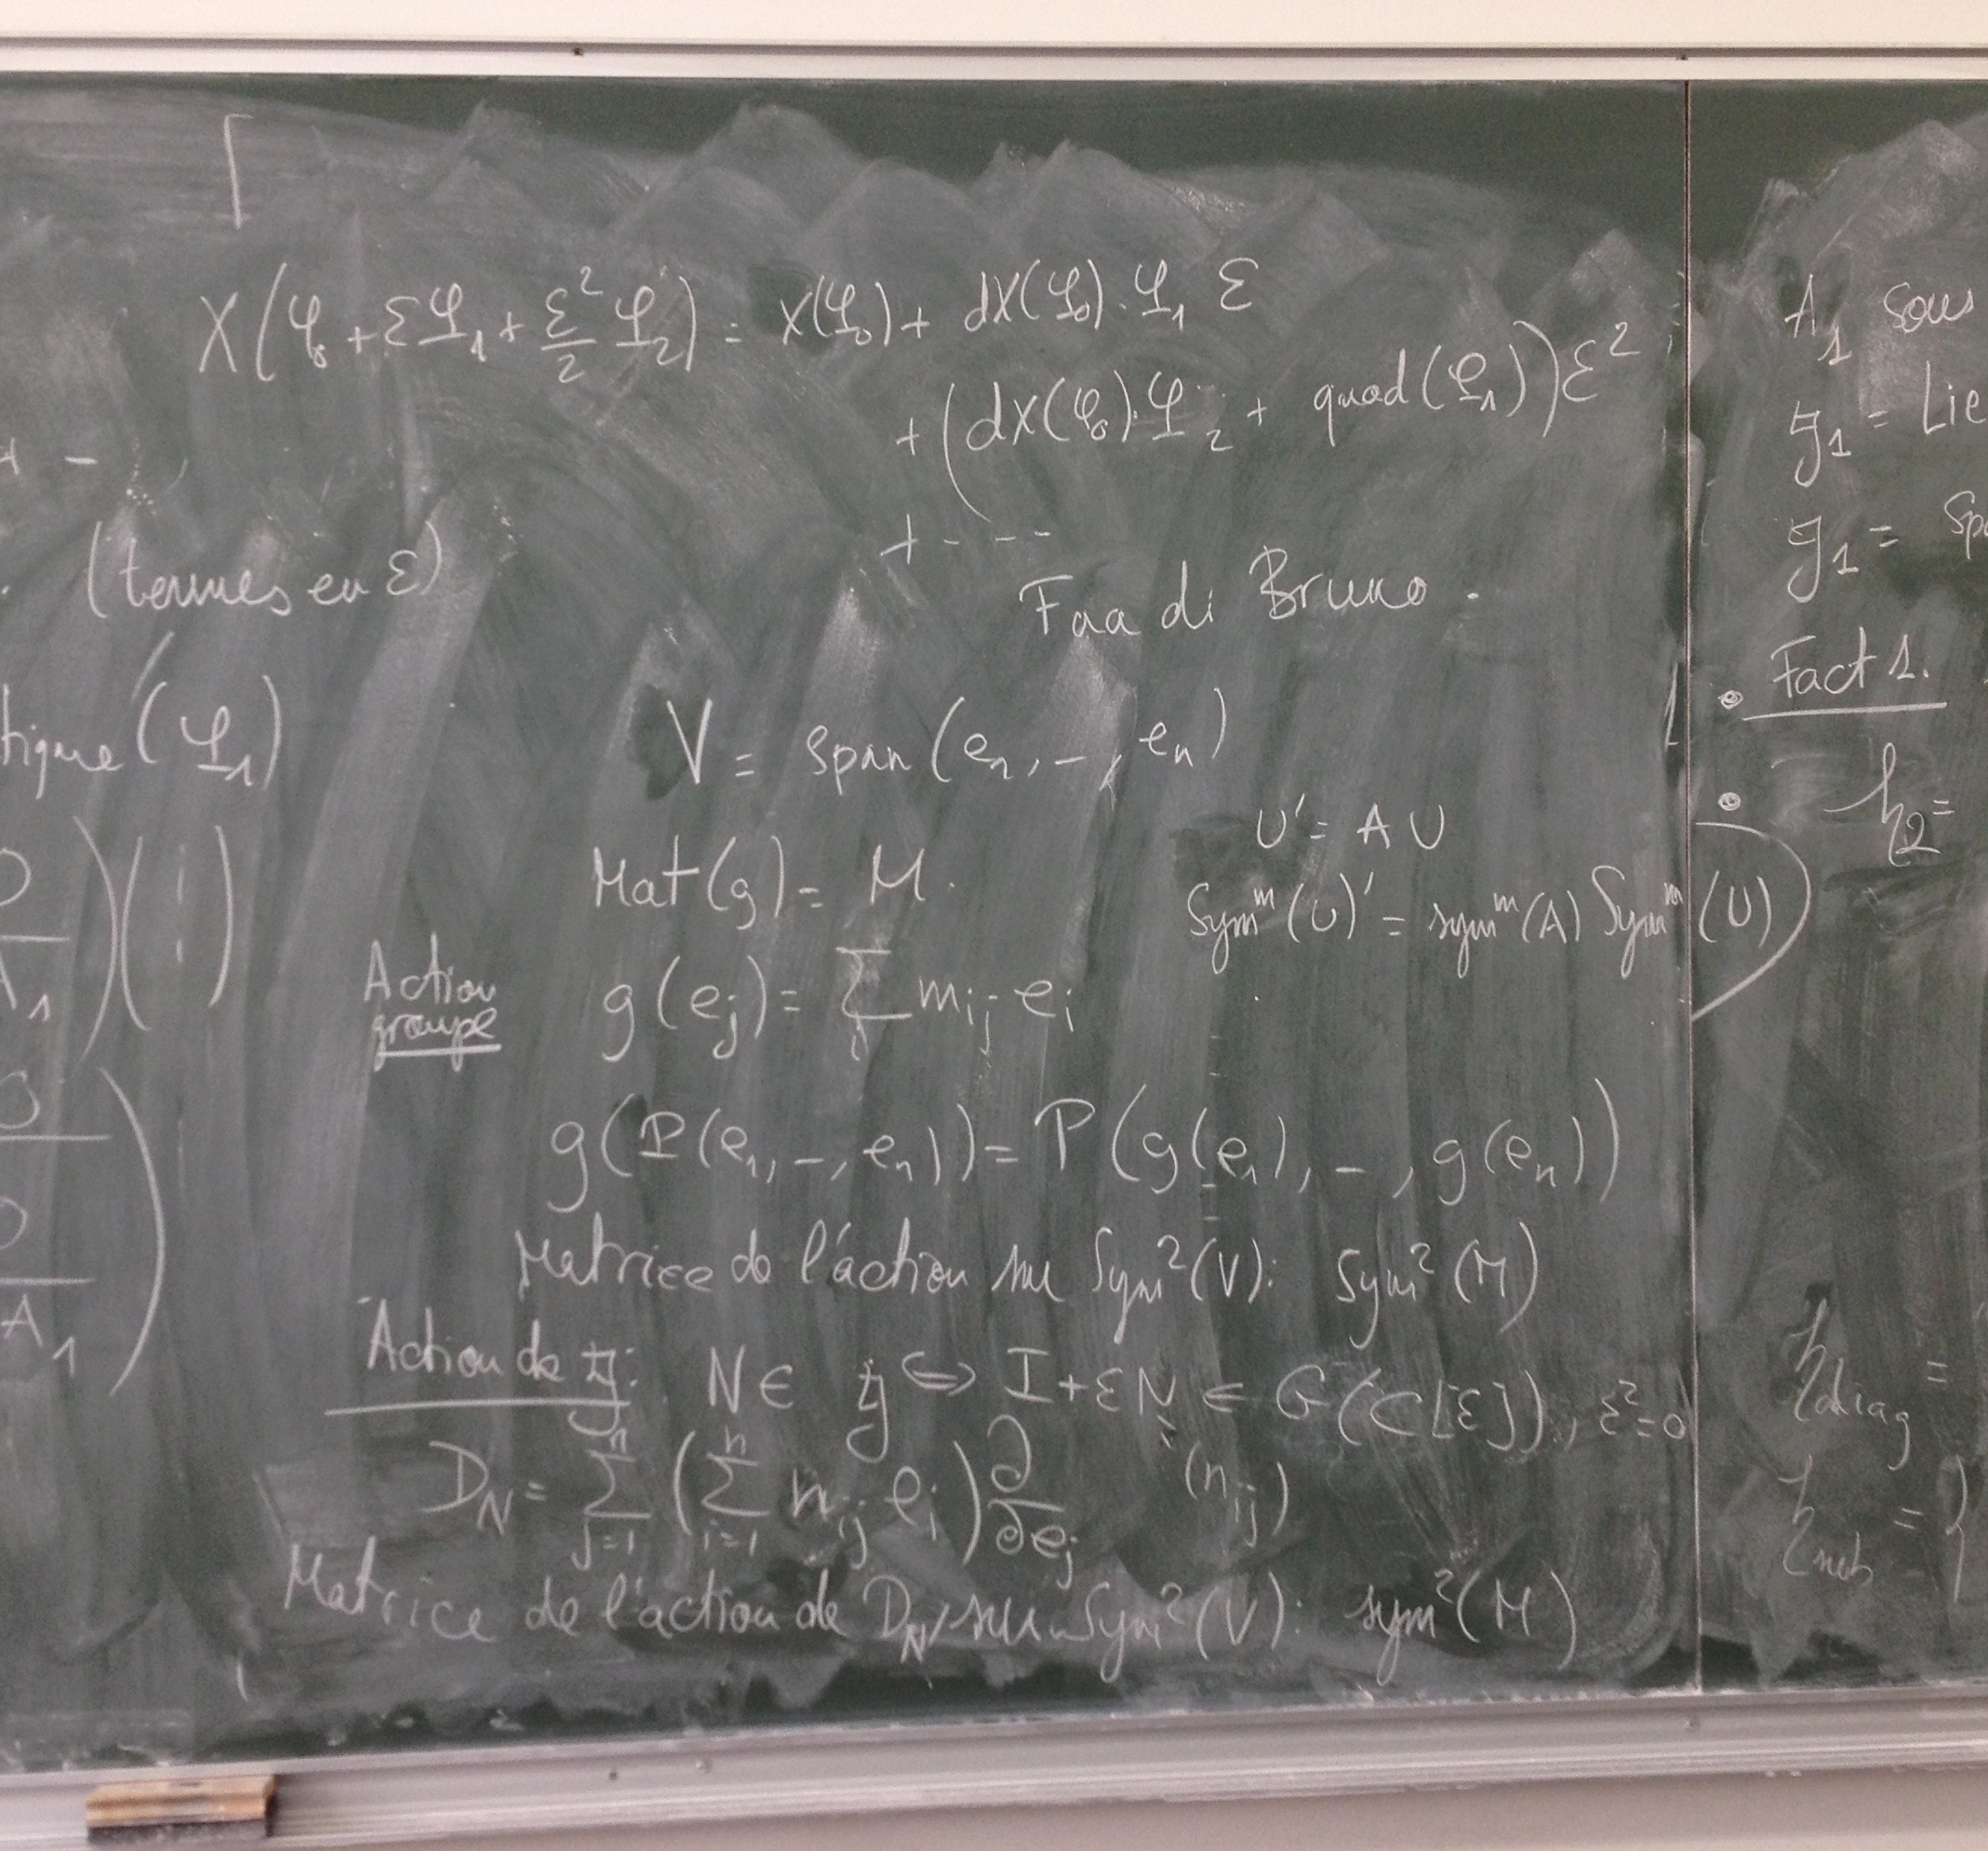 X(φ₀ + εφ₁ + ε²/2 φ₂) = X(φ₀) + dX(φ₀).φ₁ ε
+ (dX(φ₀).φ₂ + quad(φ₁))ε²
+ - - -
(termes en ε)
Faa di Bruno.
tique(φ₁)
V = span(e₁, -, eₙ)
U' = A U
Mat(g) = M.
Symᵐ(U)' = symᵐ(A) Symᵐ(U)
Action
groupe
g(eⱼ) = Σᵢ mᵢⱼ eᵢ
g(P(e₁, -, eₙ)) = P(g(e₁), -, g(eₙ))
Matrice de l'action sur Sym²(V): Sym²(M)
Action de 𝔤: N ∈ 𝔤 ⇔ I+εN ∈ G(C[ε]), ε²=0
D_N = Σⱼ₌₁ⁿ (Σᵢ₌₁ⁿ nᵢⱼ eᵢ) ∂/∂eⱼ (nᵢⱼ)
Matrice de l'action de D_N sur Sym²(V): sym²(M)
0
A₁
0
0
A₁
A₁ sous
𝔤₁ = Lie
𝔤₁ = Sp
• Fact 1.
• h₂ =
h_diag =